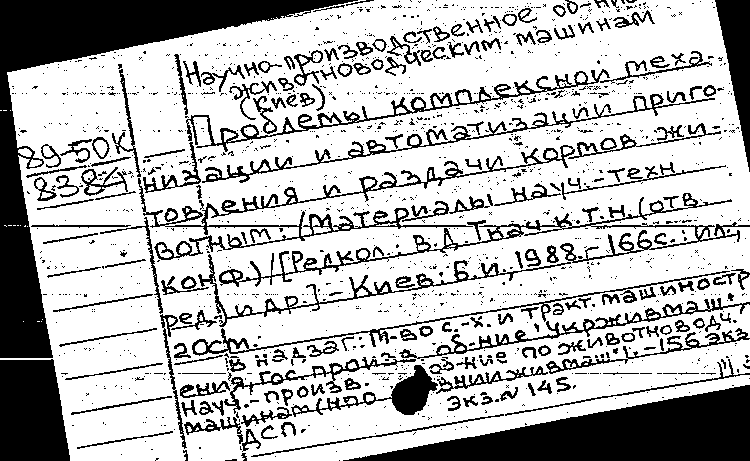 Научно-производственное об-ние
животноводческим машинам
(Киев).
Проблемы комплексной меха-
89-50К
8384
низации и автоматизации приго-
товления и раздачи кормов жи-
вотным: (Материалы науч.-техн.
конф.) / [Редкол.: В.Д. Ткач к.т.н. (отв.
ред.) и др.] - Киев: Б.и., 1988. - 166с.: ил.;
20см.
В надзаг.: М-во с.-х. и тракт. машиностр
ения, Гос. произв. об-ние "Укрживмаш".
Науч.-произв. об-ние по животноводч.
машинам (НПО ВНИИживмаш"). - 156 экз
ДСП. Экз. N 145.